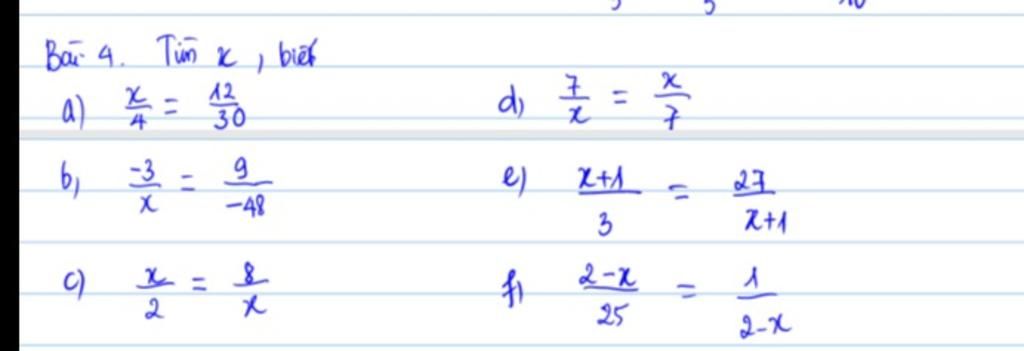 Bài 4. Tìm x, biết
a) x/4 = 12/30
d) 7/x = x/7
b) -3/x = 9/-48
e) x+1/3 = 27/x+1
c) x/2 = 8/x
f) 2-x/25 = 1/2-x